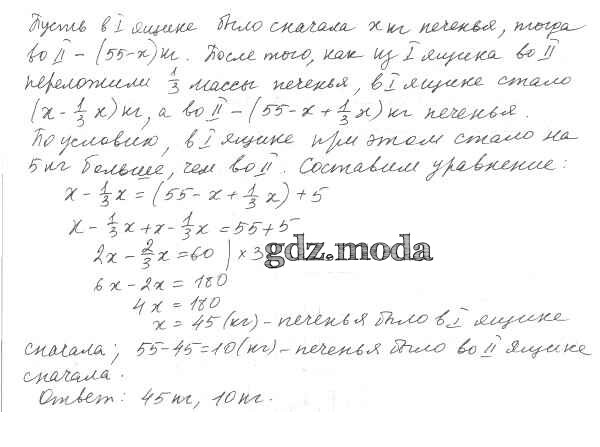 Пусть в I ящике было сначала x кг печенья, тогда
во II – (55-x) кг. После того, как из I ящика во II
переложили 1/3 массы печенья, в I ящике стало
(x - 1/3 x) кг, а во II – (55 - x + 1/3 x) кг печенья.
По условию, в I ящике при этом стало на
5 кг больше, чем во II. Составим уравнение:
x - 1/3 x = (55 - x + 1/3 x) + 5
x - 1/3 x + x - 1/3 x = 55 + 5
2x - 2/3 x = 60 | × 3
gdz.moda
6x - 2x = 180
4x = 180
x = 45 (кг) – печенья было в I ящике
сначала; 55-45=10 (кг) – печенья было во II ящике
сначала.
Ответ: 45 кг, 10 кг.